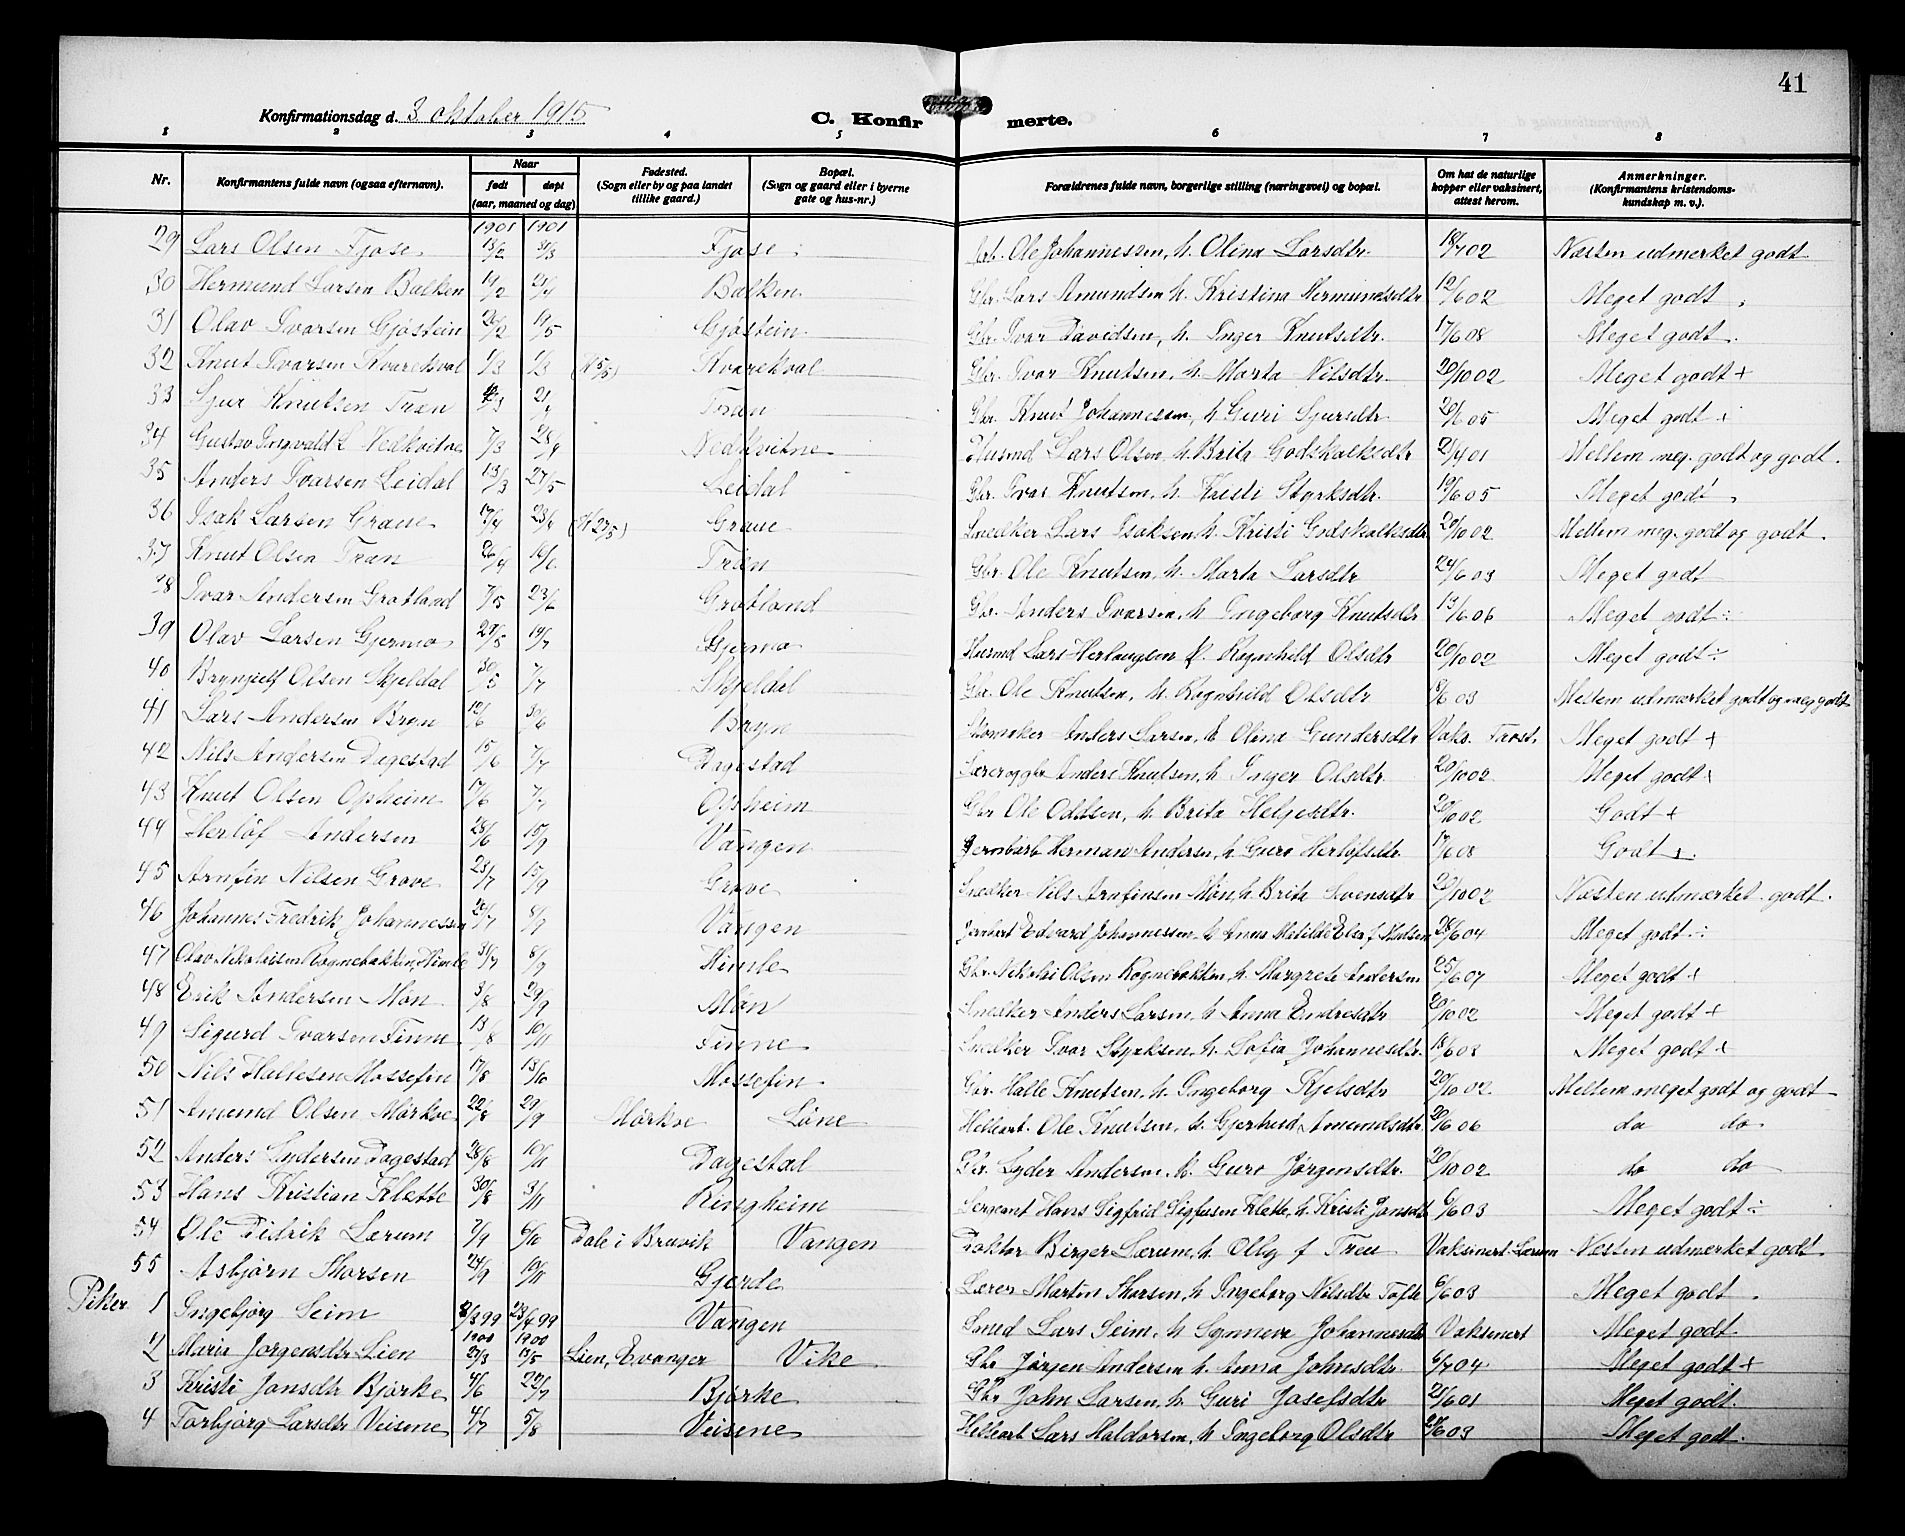 41
Konfirmationsdag d. 3 oktober 1915
C. Konfirmerte.
1 2 3 4 5 6 7 8
Nr. Konfirmantens fulde navn (ogsaa efternavn). Naar født døpt (aar, maaned og dag) Fødested. (Sogn eller by og paa landet tillike gaard.) Bopæl. (Sogn og gaard eller i byerne gate og hus-nr.) Forældrenes fulde navn, borgerlige stilling (næringsvei) og bopæl. Om hat de naturlige kopper eller vaksinert, attest herom. Anmerkninger. (Konfirmantens kristendomskundskap m. v.).
1901 1901
29 Lars Olsen Fjose 31/3 Fjose Ole Johannessen, h. Olina Larsdtr. 18/7 02 Næsten udmerket godt
30 Hermund Larsen Balken 21/4 Balken Gbr. Lars Amundsen h. Kristina Hermundsdtr 12/6 02 Meget godt
31 Olav Ivarsen Gjøstein 19/5 Gjøstein Gbr. Ivar Davidsen, h. Inger Knutsdtr. 17/6 08 Meget godt.
32 Knut Ivarsen Kvarekval 1/3 1/3 Kvarekval Gbr. Ivar Knutsen, h. Marta Nilsdtr. 20/10 02 Meget godt +
33 Sjur Knutsen Træn 21/4 Træn Gbr. Knut Johannessen, h Guri Sjursdtr. 20/6 05 Meget godt +
34 Gustav Ingvald L Nedkvitne 7/3 28/4 Nedkvitne Husmd Lars Olsen, h. Brita Godskalksdtr 21/4 01 Mellem meg. godt og godt.
35 Anders Ivarsen Leidal 13/3 27/5 Leidal Gbr. Ivar Knutsen, h. Kristi Styrksdtr. 19/6 05 Meget godt
36 Isak Larsen Graue 17/4 23/4 (H 27/5) Graue Snedker Lars Isaksen, h. Kristi Godskalksdtr 20/10 02 Mellem meg. godt og godt.
37 Knut Olsen Træn 26/4 16/6 Træn Gbr. Ole Knutsen, h. Marta Larsdtr 24/6 03 Meget godt
38 Ivar Andersen Grotland 7/5 23/6 Grotland Gbr. Anders Ivarsen, h Ingeborg Knutsdtr 13/6 06 Meget godt ÷
39 Olav Larsen Gjerme 29/5 14/7 Gjerme Husmd Lars Herlaugsen h. Ragnhild Olsdtr 20/10 02 Meget godt ÷
40 Brynjulf Olsen Skjeldal 30/5 7/7 Skjeldal Gbr. Ole Knutsen, h. Ragnhild Olsdtr 8/6 03 Mellem udmerket godt og meg godt
41 Lars Andersen Bryn 12/6 30/6 Bryn Skomaker Anders Larsen, h Olina Gundersdtr Vaks. Meget godt +
42 Nils Andersen Dagestad 15/6 7/7 Dagestad Lærer og gbr Anders Knutsen, h Inger Olsdtr. 20/10 02 Meget godt +
43 Knut Olsen Opheim 17/6 7/7 Opheim Gbr Ole Oddsen, h. Brita Helgesdtr. 20/10 02 Godt +
44 Herlöf Andersen 28/6 15/9 Vangen Jernbarb Herman Andersen, h Guro Herlöfsdtr. 17/6 08 Godt +
45 Arnfin Nilsen Grove 23/7 15/9 Grove Snedker Nils Arnfinsen Møn, h Brita Svensdtr 20/10 02 Næsten udmerket godt.
46 Johannes Fredrik Johannessen Vangen Jernbarb Edvard Johannessen h Anna Matilde Elen f. Knutsen 28/6 04 Meget godt ÷
47 Olav Nikolaisen Rognebakken, Himle 31/7 8/9 Himle Gbr. Nikolai Olsen Rognebakken, h. Margrete Andersen 25/6 07 Meget godt +
48 Erik Andersen Møn 3/8 29/9 Møn Snedker Anders Larsen, h Anna Endresdtr 20/10 02 Meget godt +
49 Sigurd Ivarsen Finne 13/8 10/11 Finne Snedker Ivar Styrksen, h. Sofia Johannesdtr. 18/6 03 Meget godt +
50 Nils Hallesen Mossefin 17/8 13/10 Mossefin Gbr. Halle Knutsen, h. Ingeborg Kjelsdtr 20/10 02 Mellem meget godt og godt
51 Amund Olsen Mørkve 22/8 29/9 Mørkve Løne Helleart. Ole Knutsen, h. Gjertrud Amundsdtr. 20/6 06 do do
52 Anders Lydersen Dagestad 28/8 10/11 Dagestad Gbr. Lyder Andersen, h. Guro Jørgensdtr. 20/10 02 do do
53 Hans Kristian Klette 30/8 3/11 Ringheim Sergeant Hans Sigfrid Sigfusen Klette, h. Kristi Jonsdtr 6/6 03 Meget godt ÷
54 Ole Didrik Lærum 7/9 6/10 Dale i Bruvik Vangen Doktor Birger Lærum, h. Olly f. Vaksinert Lærum Næsten udmerket godt
55 Asbjørn Skorsen 24/9 10/11 Gjerde Lærer Martin Skorsen, h Ingeborg Nilsdtr Tofte 6/6 03 Meget godt.
Piker 1 Ingebjørg Seim 8/3 99 23/4 99 Vangen Smed Lars Seim, h Synneve Johannesdtr Vaksinert Meget godt
1900 1900
2 Maria Jørgensdtr Lien 27/3 13/5 Lien, Evanger Vike Gbr Jørgen Andersen h. Anna Johnsdtr. 6/7 04 Meget godt +
3 Kristi Jonsdtr Bjørke 4/6 22/7 Bjørke Gbr John Larsen, h Guri Josefsdtr 21/6 01 Meget godt.
4 Torbjørg Larsdtr Veisene 4/7 5/8 Veisene Helleart Lars Haldorsen, h Ingeborg Olsdtr 6 03 Meget godt.